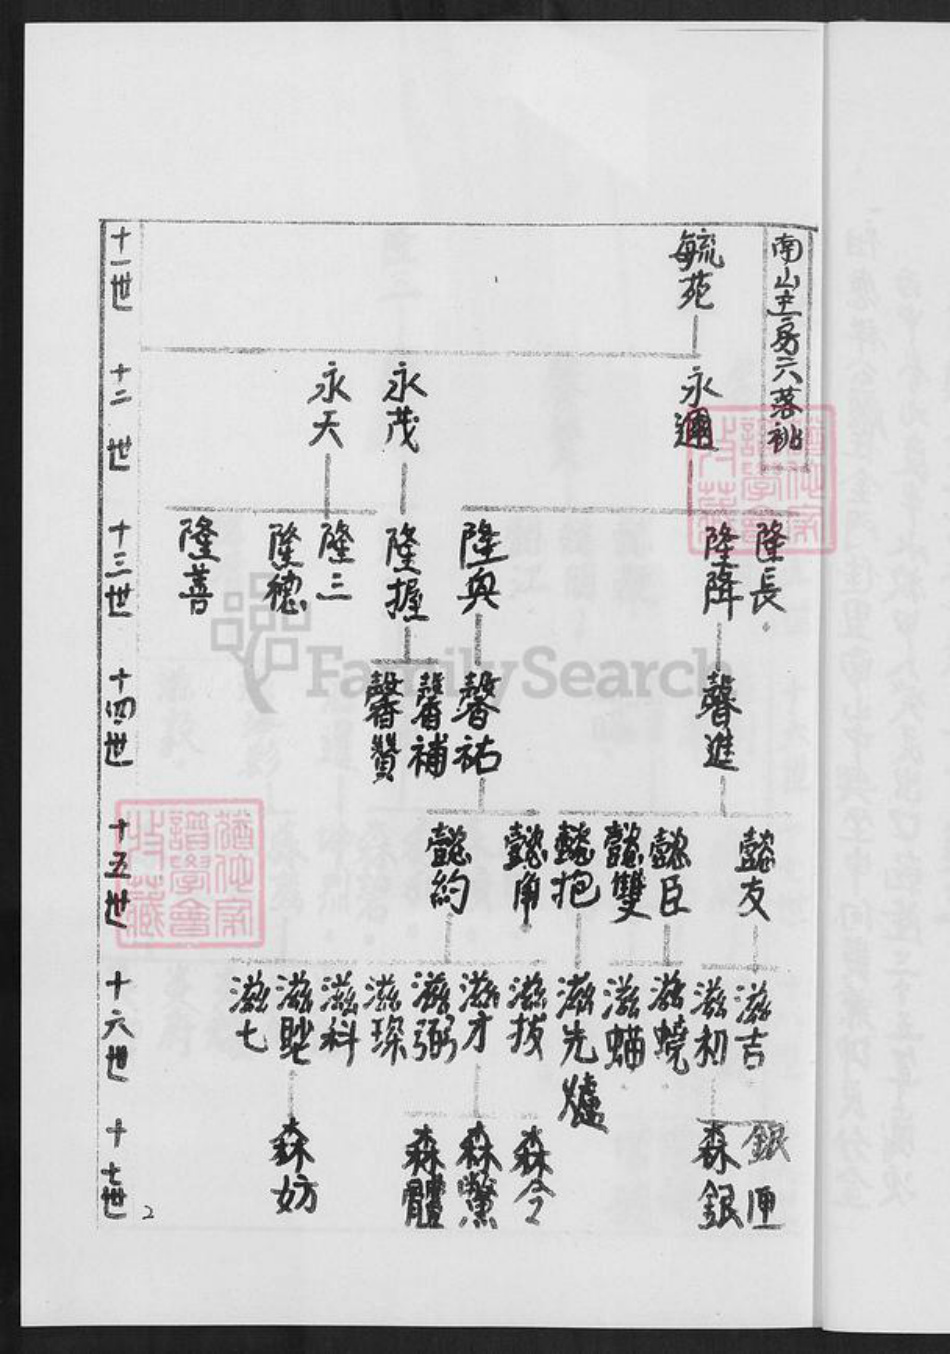 南山主房六落祧
十一世
毓苑
十二世
永邇
永茂
永天
十三世
隆長
隆降
隆與
隆握
隆三
隆德
隆善
十四世
馨進
馨祐
馨補
馨贊
十五世
懿友
懿臣
懿雙
懿抱
懿角
懿約
十六世
滋吉
滋初
滋蟯
滋蝻
滋先爐
滋拔
滋才
滋弼
滋琛
滋科
滋七
十七世
銀匣
森銀
森令
森鱉
森體
森妨
2
FamilySearch